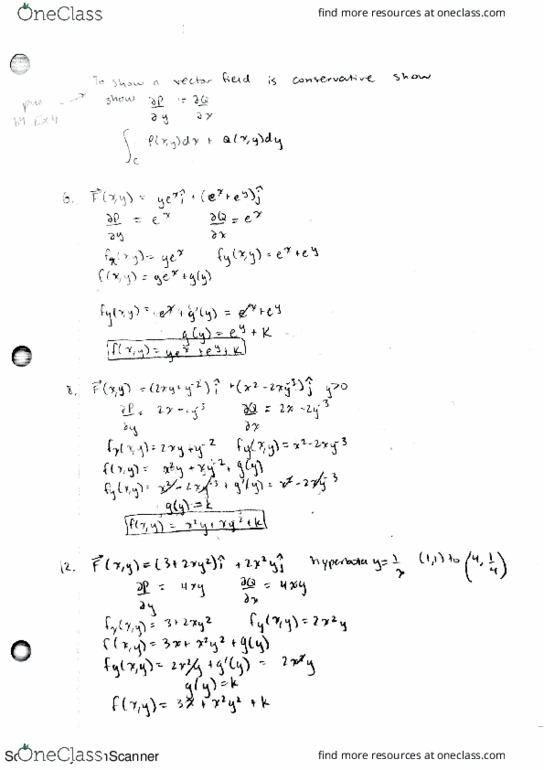 OneClass
find more resources at oneclass.com
To show a vector field is conservative show
show ∂P/∂y = ∂Q/∂x
∫_C P(x,y)dx + Q(x,y)dy
6. F⃗(x,y) = ye^x î + (e^x + e^y) ĵ
∂P/∂y = e^x ∂Q/∂x = e^x
f_x(x,y) = ye^x f_y(x,y) = e^x + e^y
f(x,y) = ye^x + g(y)
f_y(x,y) = e^x + g'(y) = e^x + e^y
g(y) = e^y + k
f(x,y) = ye^x + e^y + k
8. F⃗(x,y) = (2xy + y^-2) î + (x^2 - 2xy^-3) ĵ y>0
∂P/∂y = 2x - y^-3 ∂Q/∂x = 2x - 2y^-3
f_x(x,y) = 2xy + y^-2 f_y(x,y) = x^2 - 2xy^-3
f(x,y) = x^2y + xy^-2 + g(y)
f_y(x,y) = x^2 - 2xy^-3 + g'(y) = x^2 - 2xy^-3
g(y) = k
f(x,y) = x^2y + xy^2 + k
12. F⃗(x,y) = (3 + 2xy^2) î + 2x^2y ĵ hyperbola y = 1/x (1,1) to (4, 1/4)
∂P/∂y = 4xy ∂Q/∂x = 4xy
f_x(x,y) = 3 + 2xy^2 f_y(x,y) = 2x^2y
f(x,y) = 3x + x^2y^2 + g(y)
f_y(x,y) = 2x^2y + g'(y) = 2x^2y
g(y) = k
f(x,y) = 3x + x^2y^2 + k
OneClass
Scanner
find more resources at oneclass.com